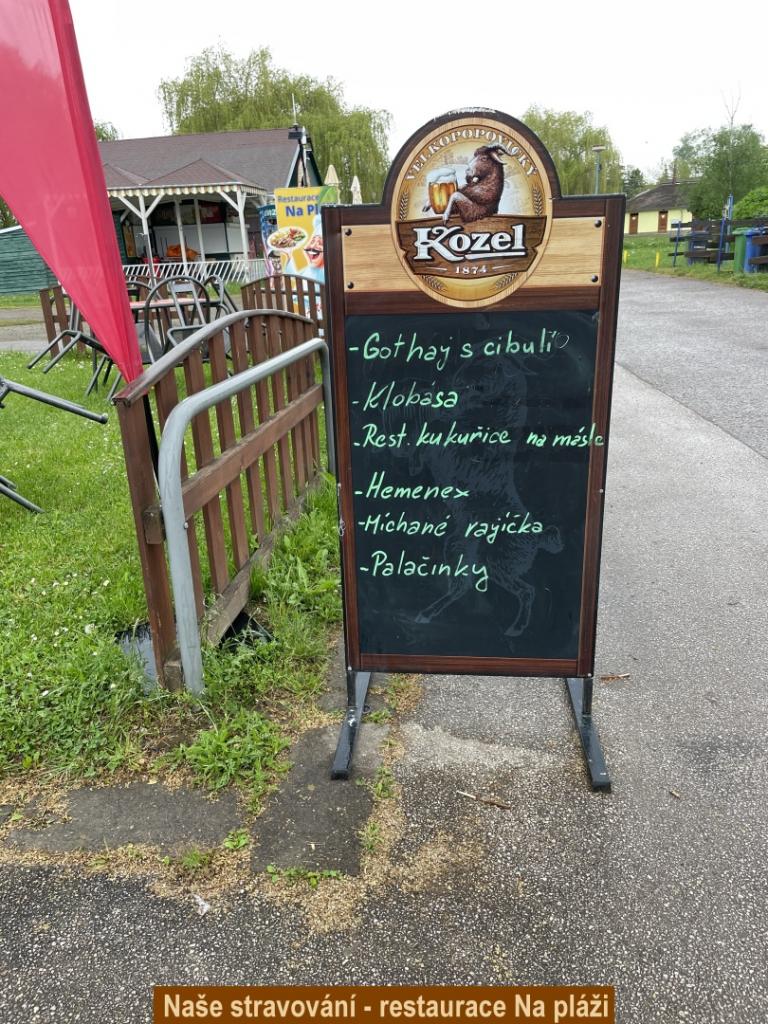 VELKOPOPOVICKÝ
Kozel
1874
Restaurace
Na Pl
-Gothaj s cibulí
-Klobása
-Rest. kukuřice na másle
-Hemenex
-Míchané vajíčka
-Palačinky
Naše stravování - restaurace Na pláži